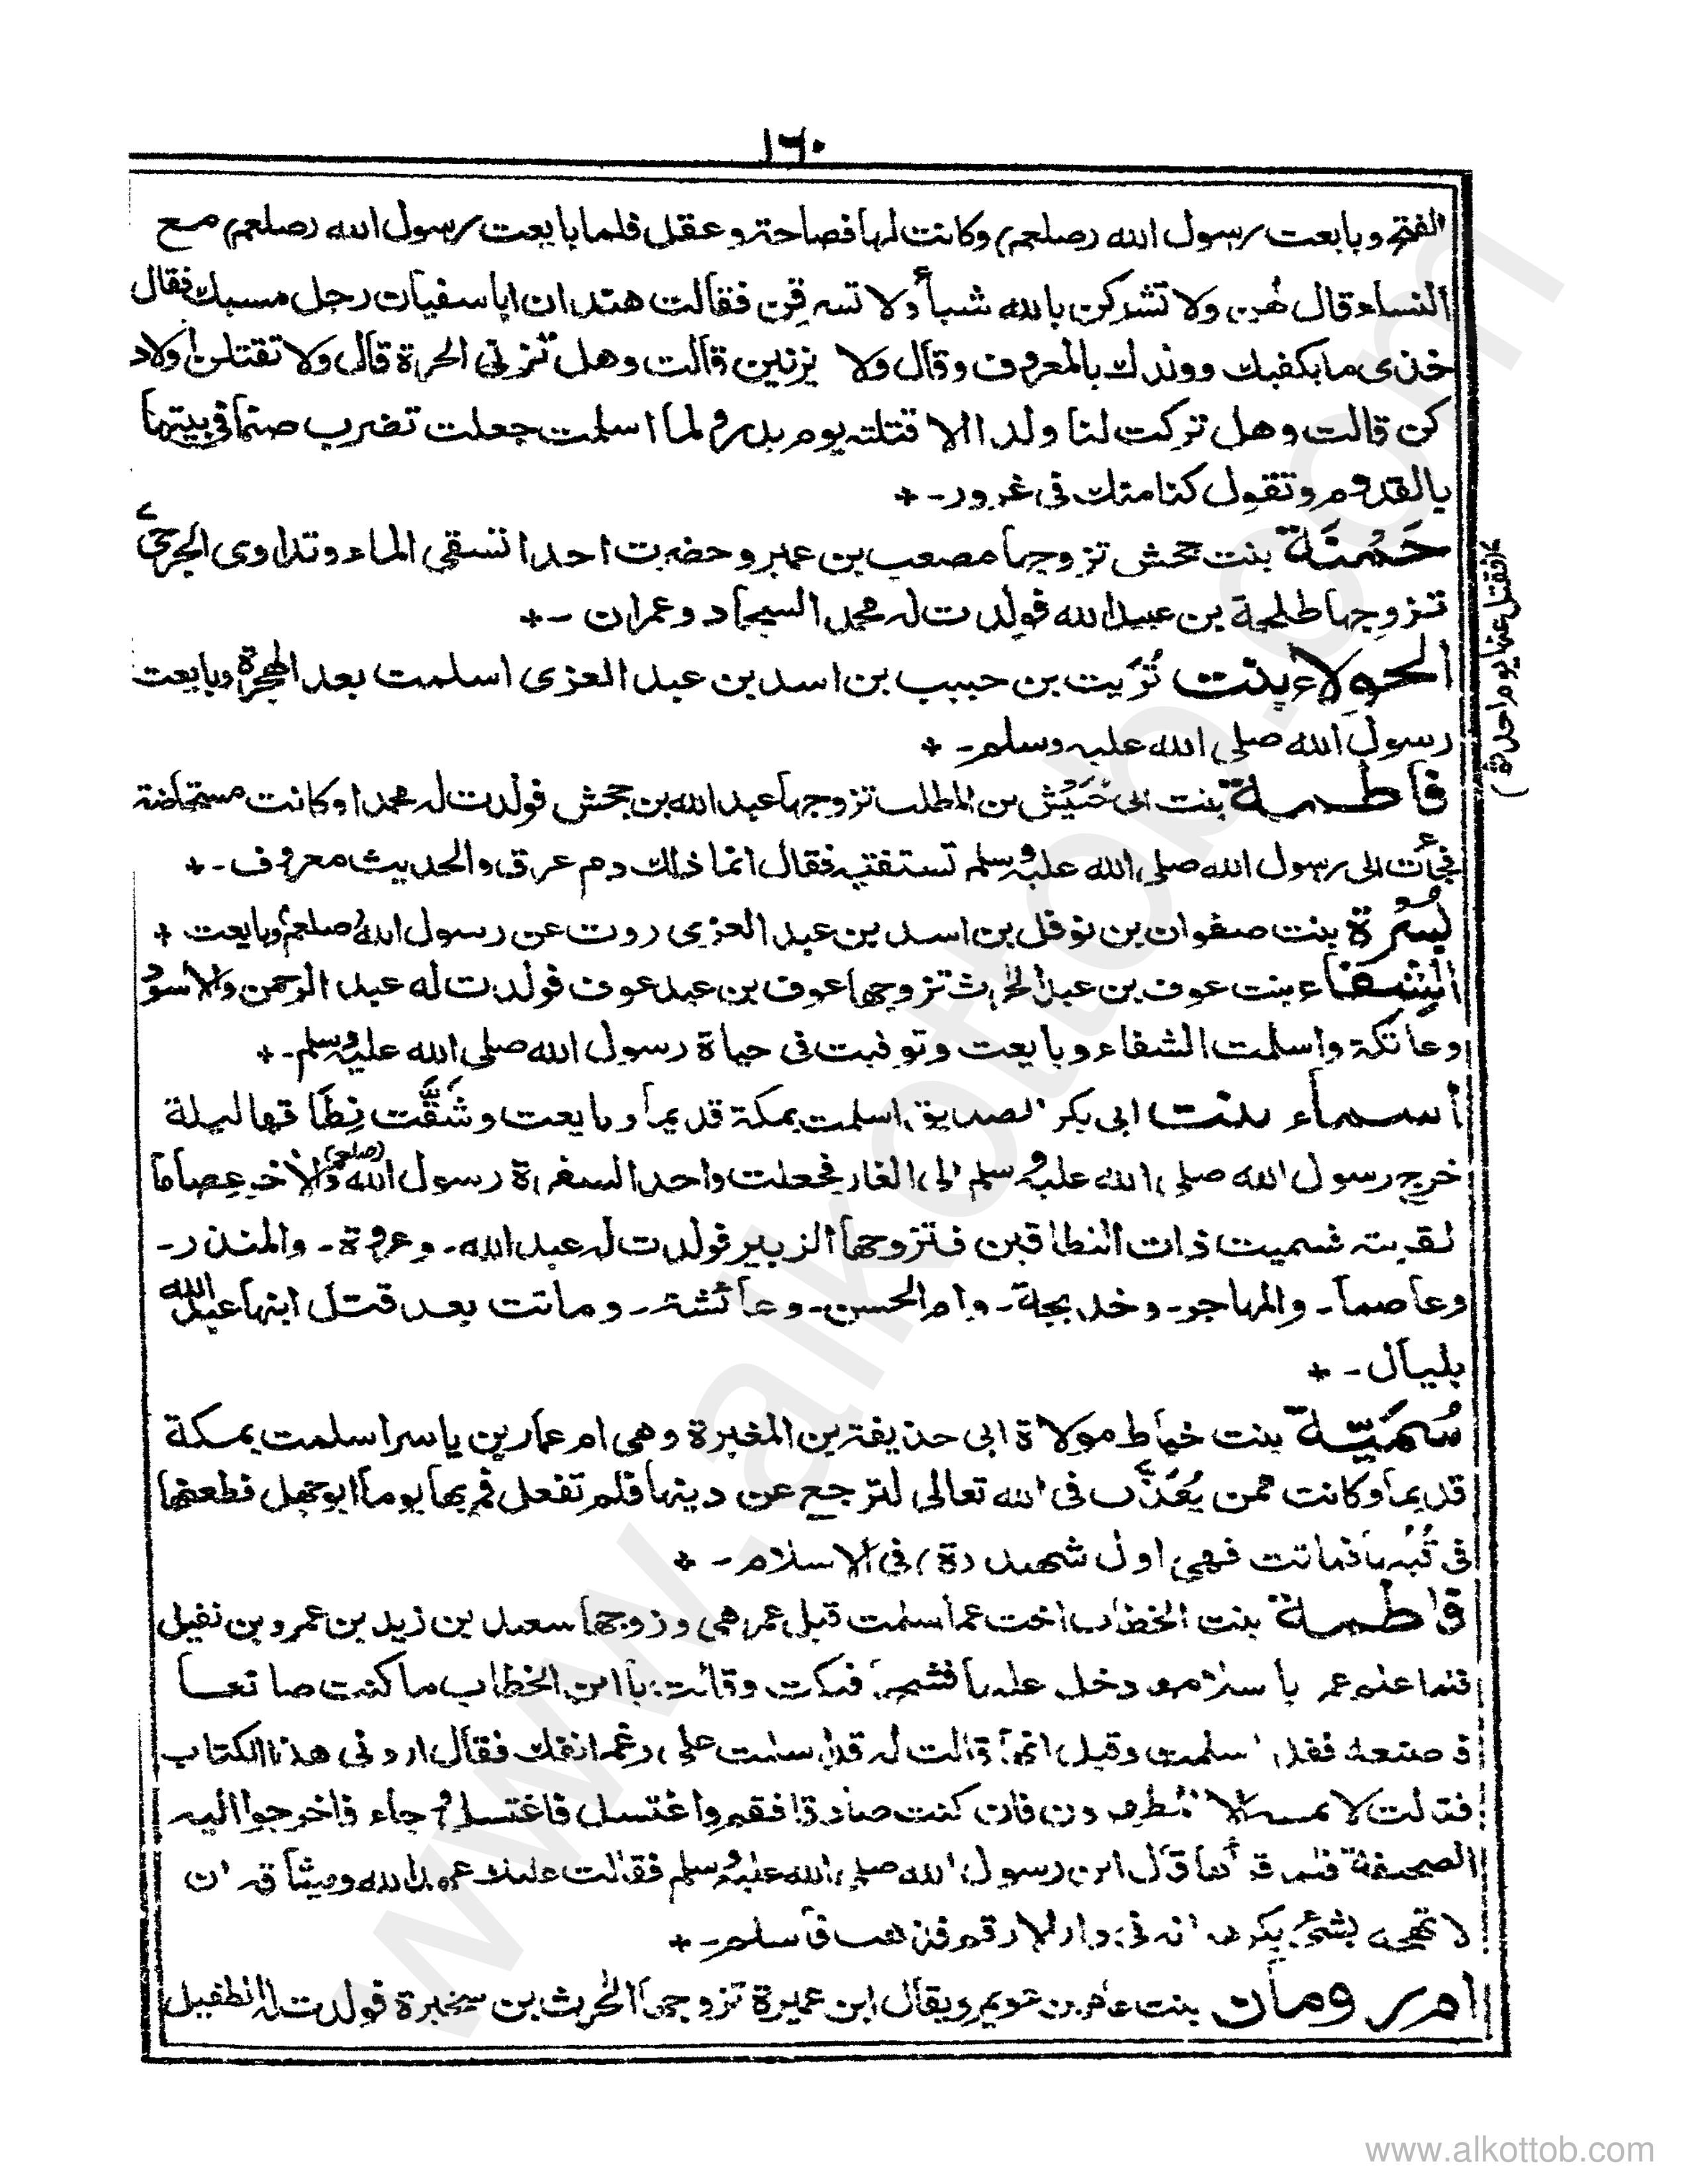 ١٦٠
الفتح وبابعت رسول الله (صلعم) وكانت لها فصاحة وعقل فلما بايعت رسول الله (صلعم) مع
النساء قال لهن ولا تشركن بالله شيأ ولا تسرقن فقالت هندان اباسفيان رجل مسيك فقال
خذى مايكفيك وولدك بالمعروف وقال ولا يزنين قالت وهل تزنى الحرة قال ولا تقتلن اولاد
كن قالت وهل تركت لنا ولدا الا قتلته يوم بدر ولما اسلمت جعلت تضرب صنما فى بيتها
بالقدوم وتقول كنا منك فى غرور - +
حَمْنَة بنت جحش تزوجها مصعب بن عمير وحضرت احدا تسقى الماء وتداوى الجرحى
تزوجها طلحة بن عبيدالله فولدت له محمد السجاد وعمران - +
الحولاء بنت تُوَيت بن حبيب بن اسد بن عبد العزى اسلمت بعد الهجرة وبايعت
رسول الله صلى الله عليه وسلم - +
فاطمة بنت ابى حُبَيْش بن المطلب تزوجها عبدالله بن جحش فولدت له محمدا وكانت مستحاضة
فجأت الى رسول الله صلى الله عليه وسلم تستفتيه فقال انما ذلك دم عرق والحديث معروف - +
بُسْرَة بنت صفوان بن نوفل بن اسد بن عبد العزى روت عن رسول الله (صلعم) وبايعت +
الشِفاء بنت عوف بن عبد الحٰرث تزوجها عوف بن عبد عوف فولدت له عبد الرحمن والاسود
وعاتكة واسلمت الشفاء وبايعت وتوفيت فى حياة رسول الله صلى الله عليه وسلم - +
أسماء بنت ابى بكر الصديق اسلمت بمكة قديما وبايعت وشَقَّت نِطَاقها ليلة
خرج رسول الله صلى الله عليه وسلم الى الغار فجعلت واحدا لسفرة رسول الله (صلعم) والأخر عصاما
لقربته فسميت ذات النطاقين فتزوجها الزبير فولدت له عبدالله - وعروة - والمنذر -
وعاصما - والمهاجر - وخديجة - وام الحسن - وعائشة - وماتت بعد قتل ابنها عبدالله
بليال - +
سُمَيّة بنت خياط مولاة ابى حذيفة بن المغيرة وهى ام عمار بن ياسر اسلمت بمكة
قديما وكانت ممن يُعَذَّب فى الله تعالى لترجع عن دينها فلم تفعل فمر بها يوما ابوجهل فطعنها
فى قُبُلها فماتت فهى اول شهيد (ة) فى الاسلام - +
فاطمة بنت الخطاب اخت عمر اسلمت قبل عمر هى وزوجها سعيد بن زيد بن عمرو بن نفيل
دخل عليها فشجها فبكت وقالت يا ابن الخطاب ما كنت صانعا
اسلمت وقيل انها قالت له قد اسلمت على رغم انفك فقال ارونى هذا الكتاب
فقالت لا يمسه الا المطهرون فان كنت صادقا فقم واغتسل فاغتسل وجاء فاخرجوا اليه
الصحيفة قال اين رسول الله صلى الله عليه وسلم فقالت عليك عهد الله وميثاقه ان
لا تهجه بشئ يكرهه انه فى دار الارقم فذهب فأسلم - +
ام رومان بنت عامر بن عويمر ويقال ابن عميرة تزوجها الحٰرث بن سخبرة فولدت له الطفيل
(فقتل عنها يوم احد ثم)
www.alkottob.com